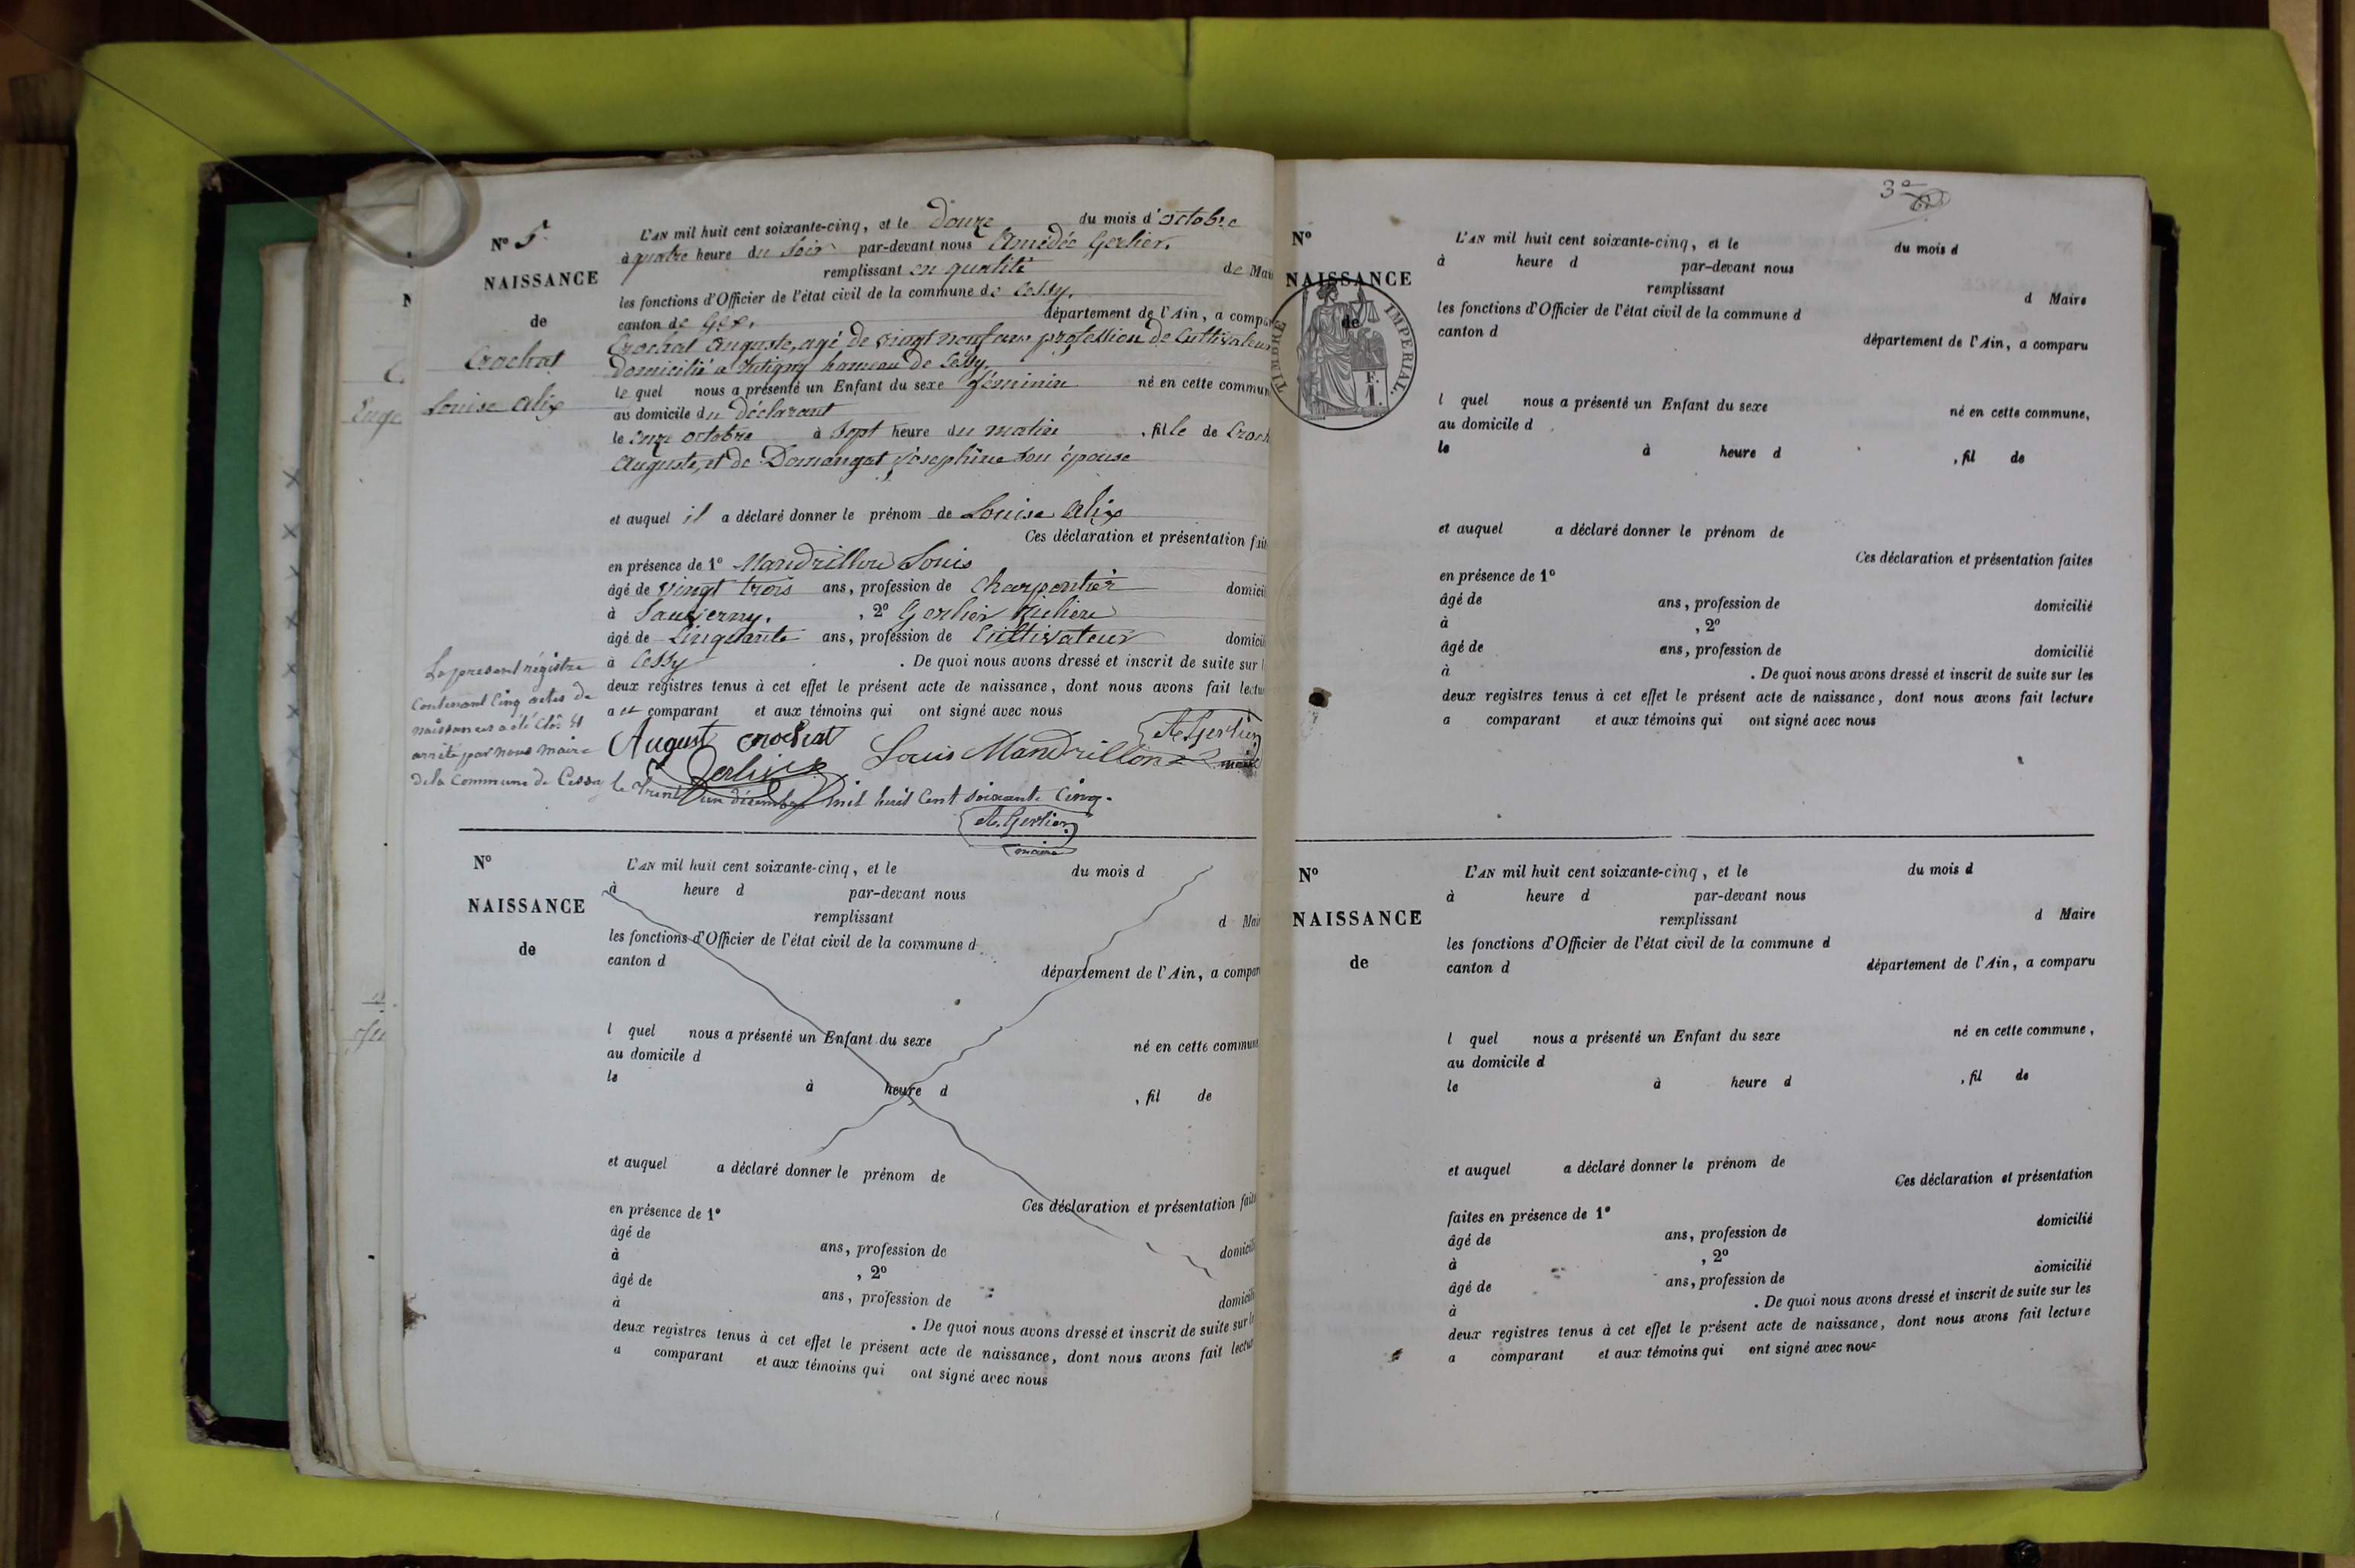 N° 5.
NAISSANCE
de
Crochat
Louise Alix
L'AN mil huit cent soixante-cinq, et le Douze du mois d'octobre
à quatre heure du Soir par-devant nous Amédée Gerlier.
remplissant en qualité de Mai
les fonctions d'Officier de l'état civil de la commune de Cessy.
canton de Gex. département de l'Ain, a compar
Crochat Auguste, agé de vingt neuf ans profession de Cultivateur
Domicilié a hameau de Cessy.
le quel nous a présenté un Enfant du sexe féminin né en cette commun
au domicile du Déclarant
le onze octobre à Sept heure du matin , fille de Croch
Auguste, et de Domangat Josephine Son épouse
et auquel il a déclaré donner le prénom de Louise Alix
Ces déclaration et présentation fait
en présence de 1° Mandrillon Louis
âgé de vingt trois ans, profession de Charpentier domicil
à Sauverny. , 2° Gerlier
âgé de Cinquante ans, profession de Cultivateur domicil
à Cessy . De quoi nous avons dressé et inscrit de suite sur l
deux registres tenus à cet effet le présent acte de naissance, dont nous avons fait lectur
a comparant et aux témoins qui ont signé avec nous
August crochat Louis Mandrillon A. Gerlier
Gerlier maire
Le present régistre
Contenant Cinq actes de
naissances a été Clos et
arrêté par nous maire
de la Commune de Cessy le trente un décembre mil huit Cent soixante Cinq.
A. Gerlier
maire
N°
NAISSANCE
de
L'AN mil huit cent soixante-cinq, et le du mois d
à heure d par-devant nous
remplissant d Mair
les fonctions d'Officier de l'état civil de la commune d
canton d département de l'Ain, a compar
l quel nous a présenté un Enfant du sexe né en cette commun
au domicile d
le à heure d , fil de
et auquel a déclaré donner le prénom de
Ces déclaration et présentation fait
en présence de 1°
âgé de ans, profession de domicili
à , 2°
âgé de ans, profession de domicili
à . De quoi nous avons dressé et inscrit de suite sur l
deux registres tenus à cet effet le présent acte de naissance, dont nous avons fait lectur
a comparant et aux témoins qui ont signé avec nous
3e
N°
NAISSANCE
de
TIMBRE IMPERIAL.
F.
1.
L'AN mil huit cent soixante-cinq, et le du mois d
à heure d par-devant nous
remplissant d Maire
les fonctions d'Officier de l'état civil de la commune d
canton d département de l'Ain, a comparu
l quel nous a présenté un Enfant du sexe né en cette commune,
au domicile d
le à heure d , fil de
et auquel a déclaré donner le prénom de
Ces déclaration et présentation faites
en présence de 1°
âgé de ans, profession de domicilié
à , 2°
âgé de ans, profession de domicilié
à . De quoi nous avons dressé et inscrit de suite sur les
deux registres tenus à cet effet le présent acte de naissance, dont nous avons fait lecture
a comparant et aux témoins qui ont signé avec nous
N°
NAISSANCE
de
L'AN mil huit cent soixante-cinq, et le du mois d
à heure d par-devant nous
remplissant d Maire
les fonctions d'Officier de l'état civil de la commune d
canton d département de l'Ain, a comparu
l quel nous a présenté un Enfant du sexe né en cette commune,
au domicile d
le à heure d , fil de
et auquel a déclaré donner le prénom de
Ces déclaration et présentation
faites en présence de 1°
âgé de ans, profession de domicilié
à , 2°
âgé de ans, profession de domicilié
à . De quoi nous avons dressé et inscrit de suite sur les
deux registres tenus à cet effet le présent acte de naissance, dont nous avons fait lecture
a comparant et aux témoins qui ont signé avec nous